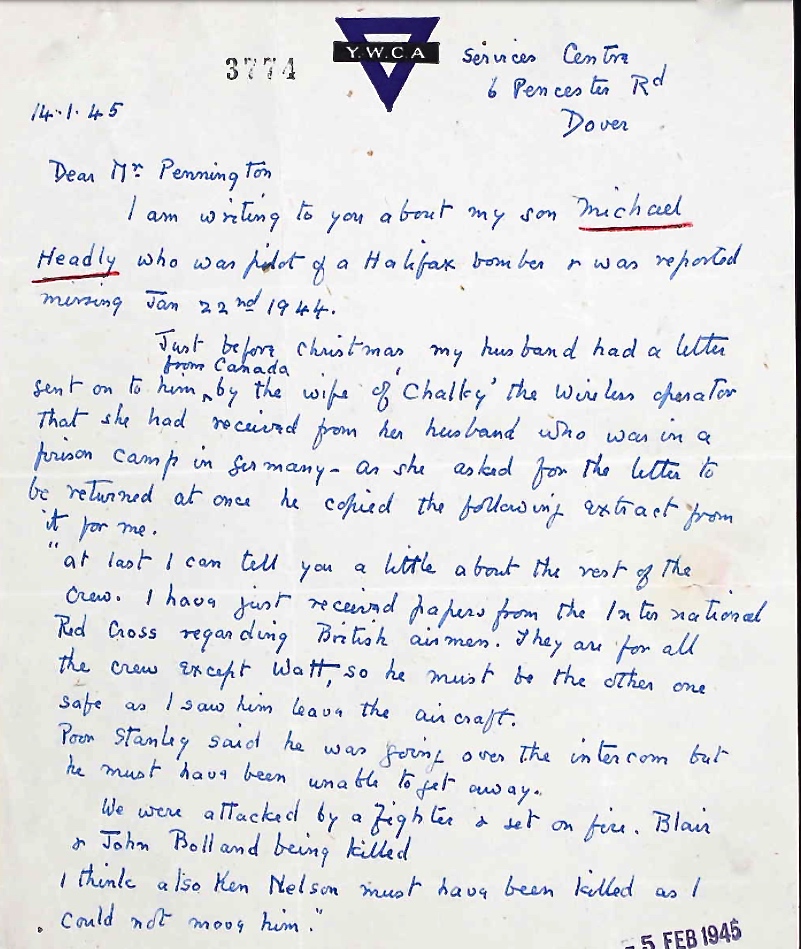 Y.W.C.A
3774
Services Centre
6 Pencester Rd
Dover
14.1.45
Dear Mr Pennington
I am writing to you about my son Michael
Headly who was pilot of a Halifax bomber & was reported
missing Jan 22nd 1944.
Just before Christmas, my husband had a letter
from Canada
sent on to him by the wife of 'Chalky' the wireless operator
that she had received from her husband who was in a
prison camp in Germany - as she asked for the letter to
be returned at once he copied the following extract from
it for me.
"at last I can tell you a little about the rest of the
crew. I have just received papers from the International
Red Cross regarding British airmen. They are for all
the crew except Watt, so he must be the other one
safe as I saw him leave the aircraft.
Poor Stanley said he was going over the intercom but
he must have been unable to get away.
We were attacked by a fighter & set on fire. Blair
& John Bolland being killed
I think also Ken Nelson must have been killed as I
could not move him."
- 5 FEB 1945